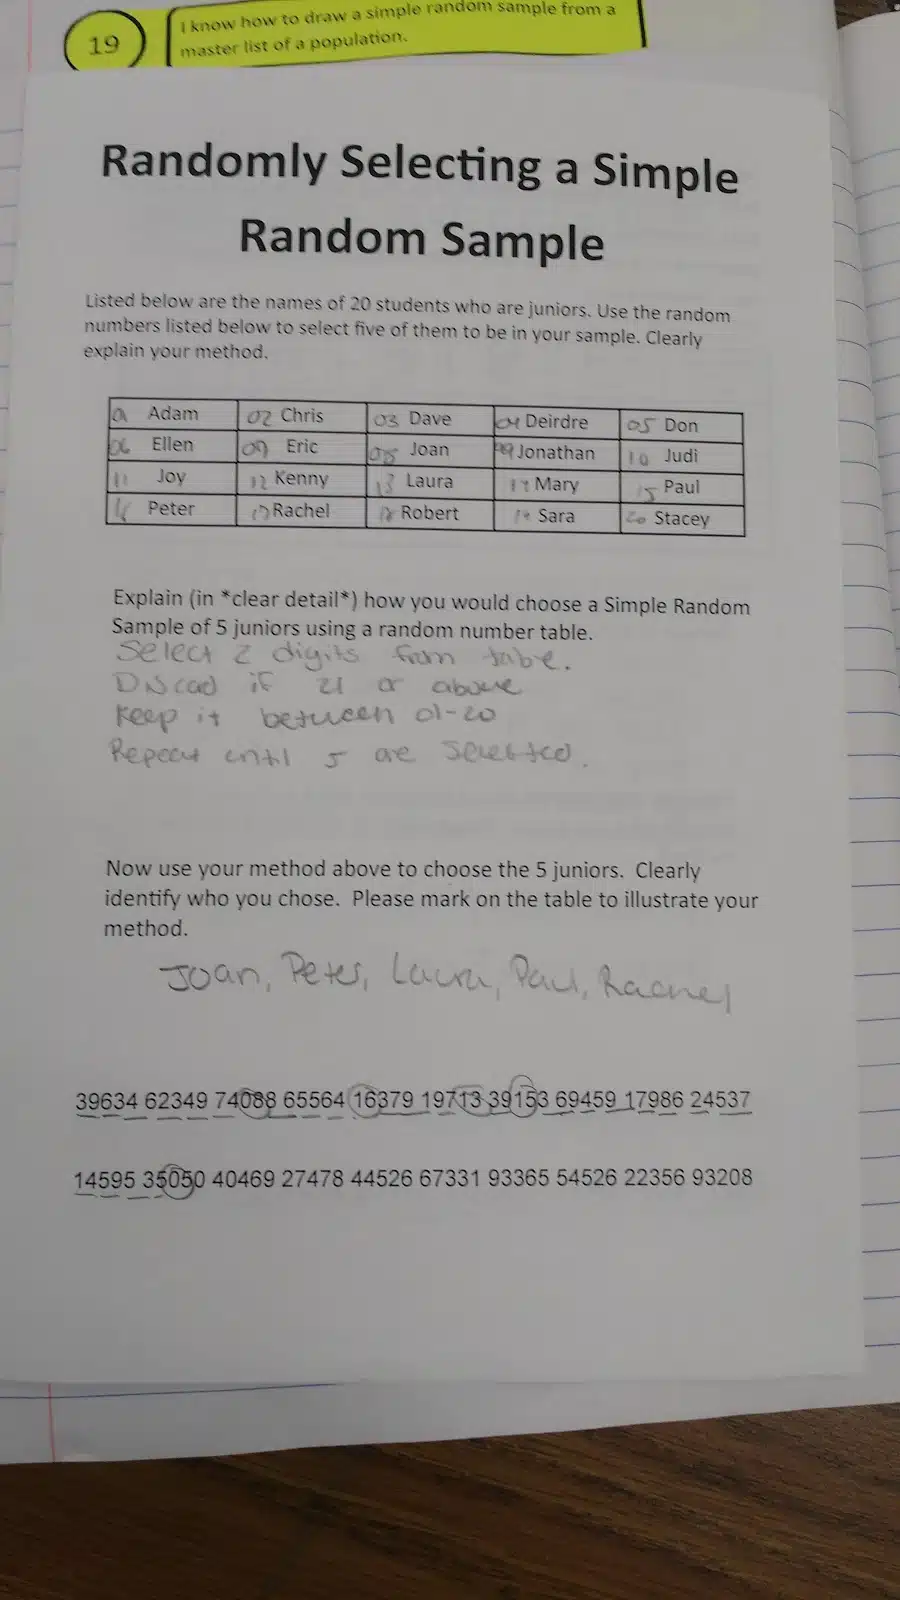 19
I know how to draw a simple random sample from a
master list of a population.
Randomly Selecting a Simple
Random Sample
Listed below are the names of 20 students who are juniors. Use the random
numbers listed below to select five of them to be in your sample. Clearly
explain your method.
01 Adam 02 Chris 03 Dave 04 Deirdre 05 Don
06 Ellen 07 Eric 08 Joan 09 Jonathan 10 Judi
11 Joy 12 Kenny 13 Laura 14 Mary 15 Paul
16 Peter 17 Rachel 18 Robert 19 Sara 20 Stacey
Explain (in *clear detail*) how you would choose a Simple Random
Sample of 5 juniors using a random number table.
Select 2 digits from table.
Discad if 21 or above
Keep it between 01-20
Repeat until 5 are selected.
Now use your method above to choose the 5 juniors. Clearly
identify who you chose. Please mark on the table to illustrate your
method.
Joan, Peter, Laura, Paul, Rachel
39634 62349 74088 65564 16379 19713 39153 69459 17986 24537
14595 35050 40469 27478 44526 67331 93365 54526 22356 93208